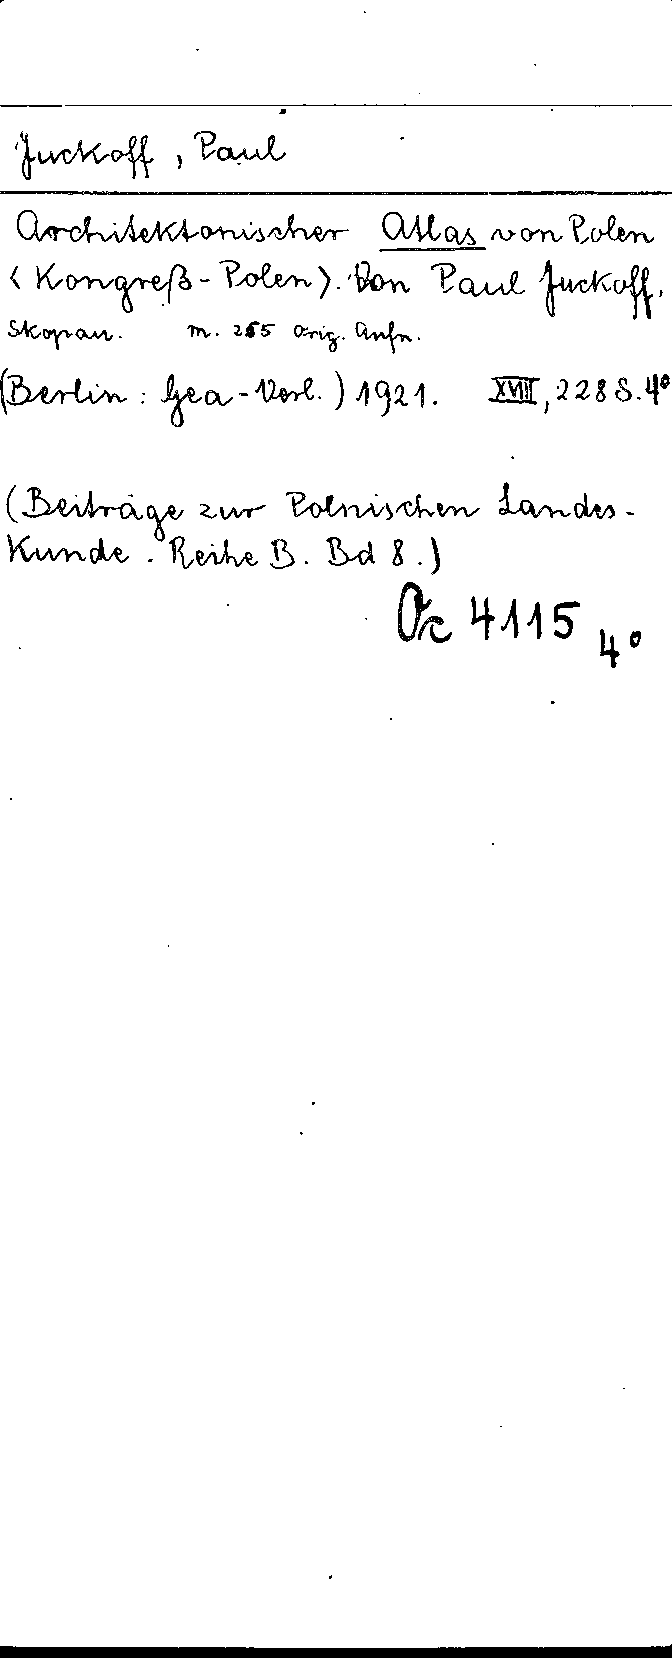 Juckoff, Paul
Architektonischer Atlas von Polen
<Kongreß-Polen>. Von Paul Juckoff,
Skopau. m. 255 Orig. Aufn.
(Berlin: Gea-Verl.) 1921. XVIII, 228 S. 4°
(Beiträge zur Polnischen Landes-
Kunde. Reihe B. Bd 8.)
4115 4°